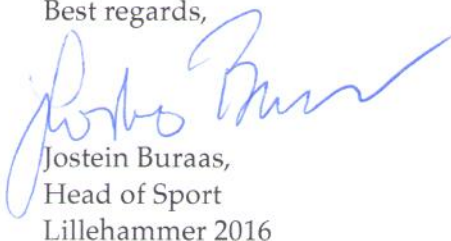 Best regards,
Jostein Buraas,
Head of Sport
Lillehammer 2016